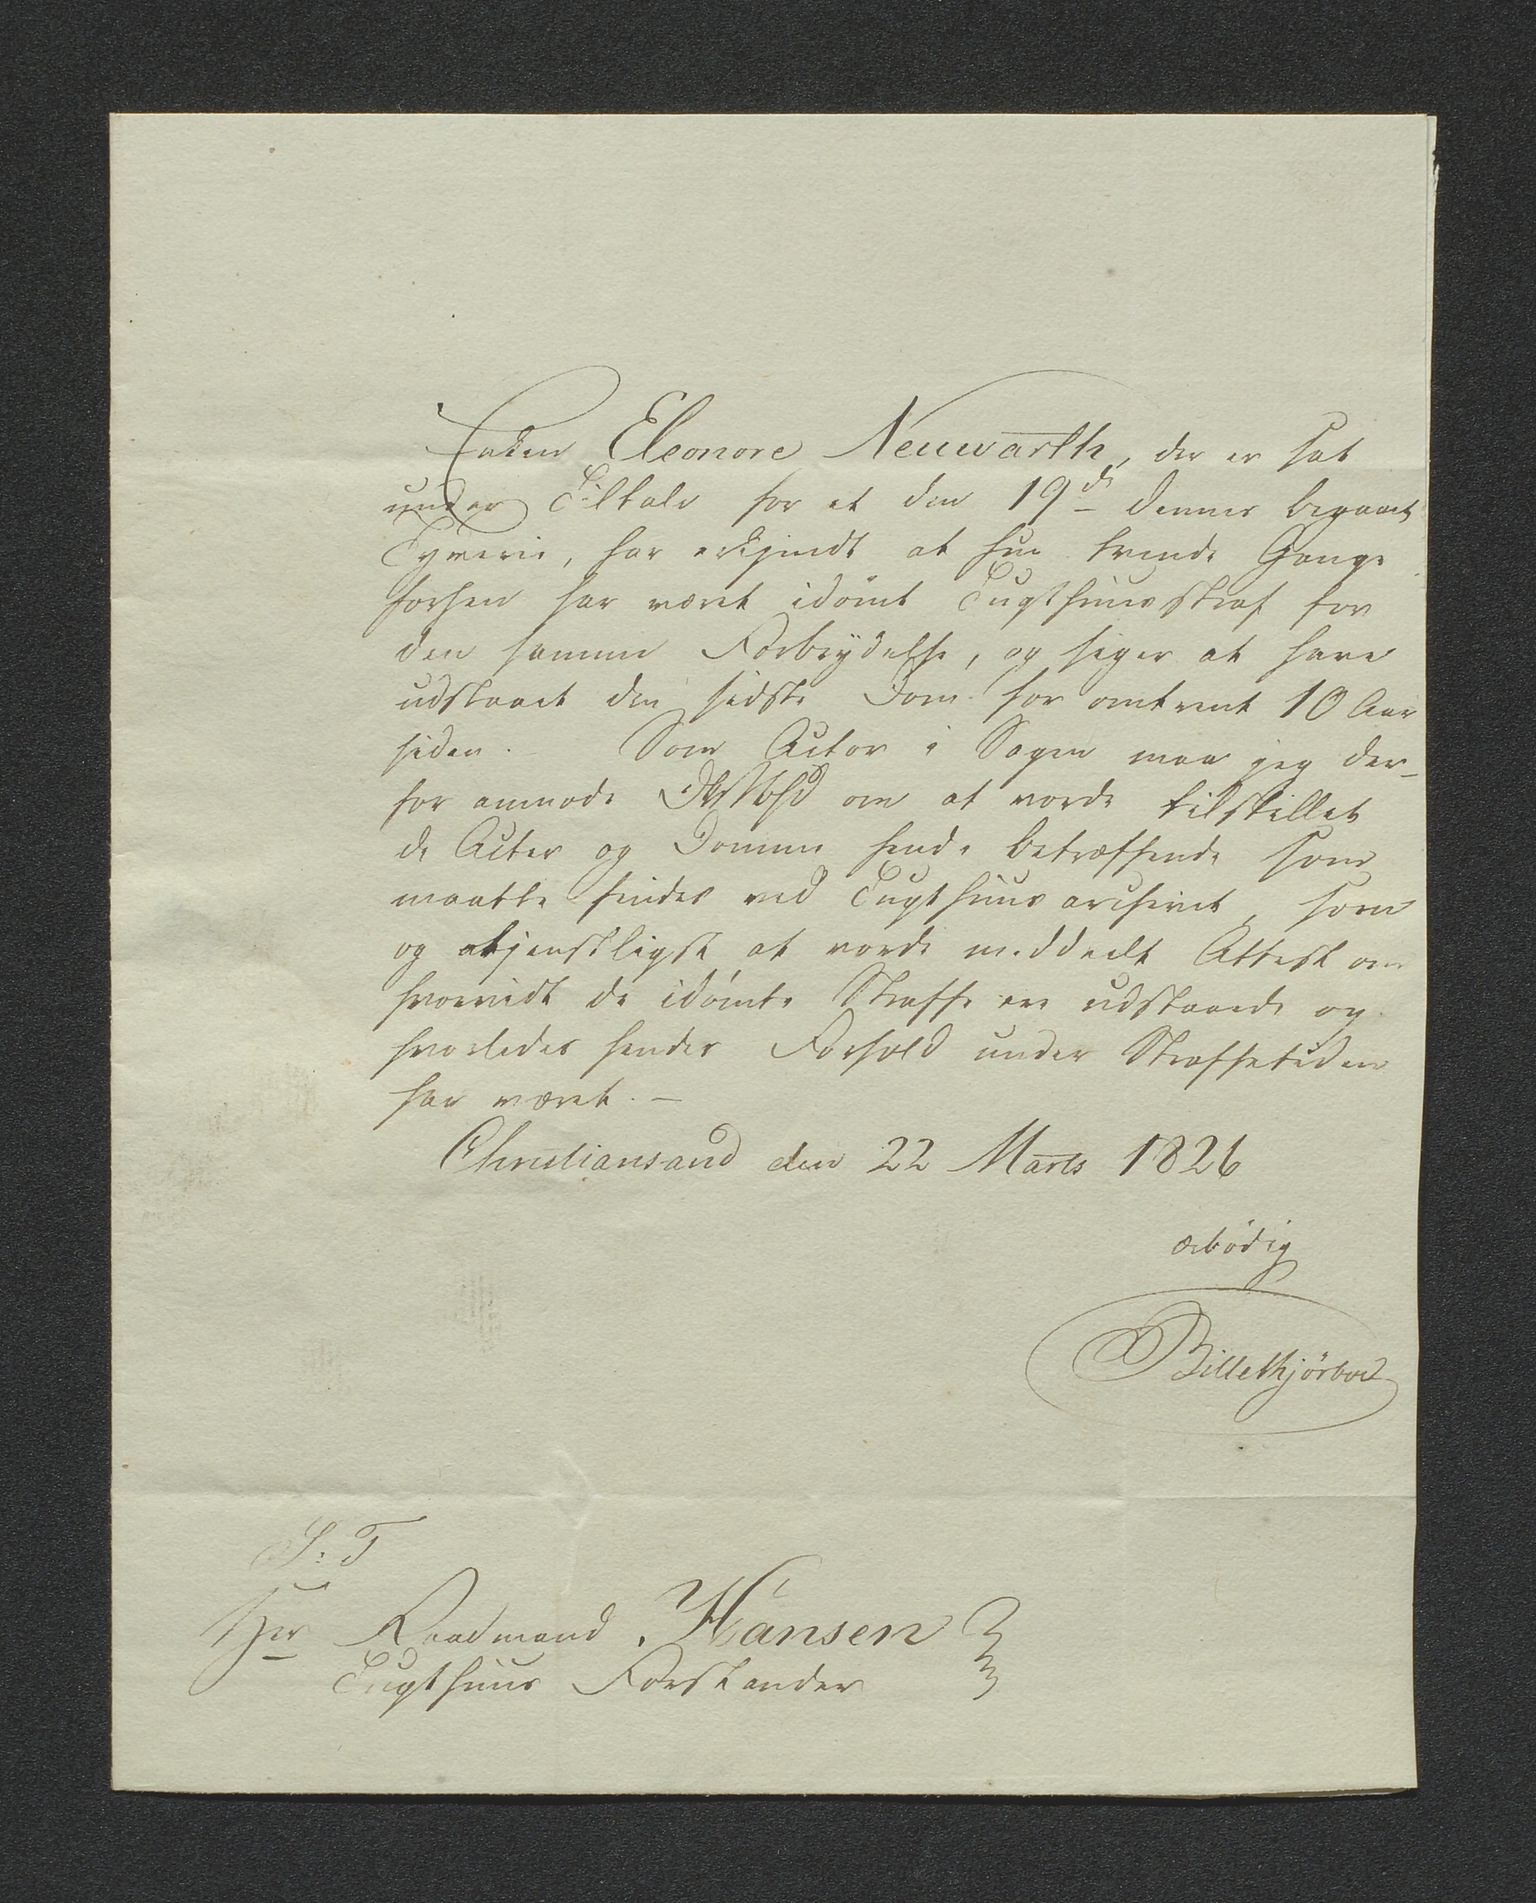 Enken Eleonore Neuwarth, der er sat
under Tiltale for et den 19de dennes begaaet
Tyverie, har erkjendt at hun tvende Gange
forhen har været idömt Tugthuusstraf for
den samme Forbrydelse, og siger at have
udstaaet den sidste Dom for omtrent 10 Aar
siden. Som Actor i Sagen maa jeg der-
for anmode om at vorde tilstillet
de Acter og Domme hende betræffende som
maatte findes ved Tugthuusarchivet, som
og at vorde meddeelt Attest om
hvorvidt de idömte Straffe ere udstaaede og
hvorledes hendes Forhold under Straffetiden
har været. —
Christiansand den 22 Marts 1826
ærbödig
Billethjörboe
S. T
Herr Raadmand Hansen
Tugthuus Forstander